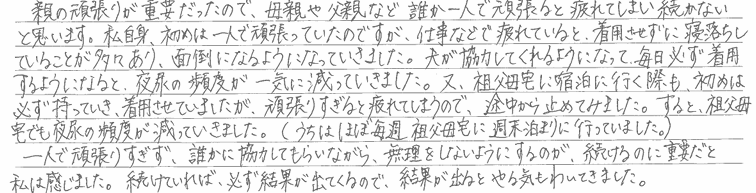 親の頑張りが重要だったので、母親や父親など誰か一人で頑張ると疲れてしまい続かない
と思います。私自身、初めは一人で頑張っていたのですが、仕事などで疲れていると、着用させずに寝落ちし
ていることが多々あり、面倒になるようになっていきました。夫が協力してくれるようになって、毎日必ず着用
するようになると、夜尿の頻度が一気に減っていきました。又、祖父母宅に宿泊に行く際も、初めは
必ず持っていき、着用させていましたが、頑張りすぎると疲れてしまうので、途中から止めてみました。すると、祖父母
宅でも夜尿の頻度が減っていきました。(うちはほぼ毎週祖父母宅に週末泊まりに行っていました。)
一人で頑張りすぎず、誰かに協力してもらいながら、無理をしないようにするのが、続けるのに重要だと
私は感じました。続けていれば、必ず結果が出てくるので、結果が出るとやる気もわいてきました。